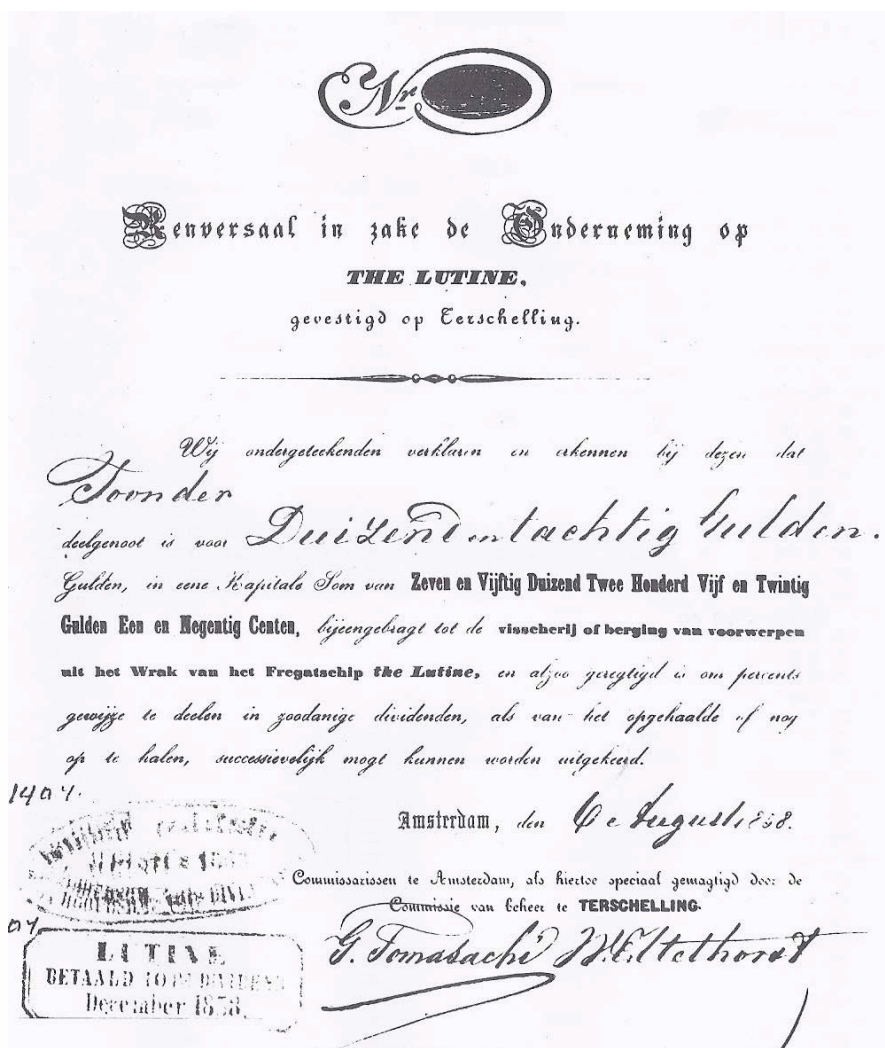 Nr
Renversaal in zake de Onderneming op
THE LUTINE,
gevestigd op Terschelling.
Wij ondergeteekenden verklaren en erkennen bij dezen dat
Toonder
deelgenoot is voor Duizend en tachtig Gulden.
Gulden, in eene Kapitale Som van Zeven en Vijftig Duizend Twee Honderd Vijf en Twintig
Gulden Een en Negentig Centen, bijeengebragt tot de visscherij of berging van voorwerpen
uit het Wrak van het Fregatschip the Lutine, en alzoo geregtigd is om percents
gewijze te deelen in zoodanige dividenden, als van het opgehaalde of nog
op te halen, successievelijk mogt kunnen worden uitgekeerd.
Amsterdam, den 6e August 1858.
Commissarissen te Amsterdam, als hiertoe speciaal gemagtigd door de
Commissie van beheer te TERSCHELLING.
LUTINE
BETAALD 10 DIVIDEND
December 1858.
G. Tomasachi